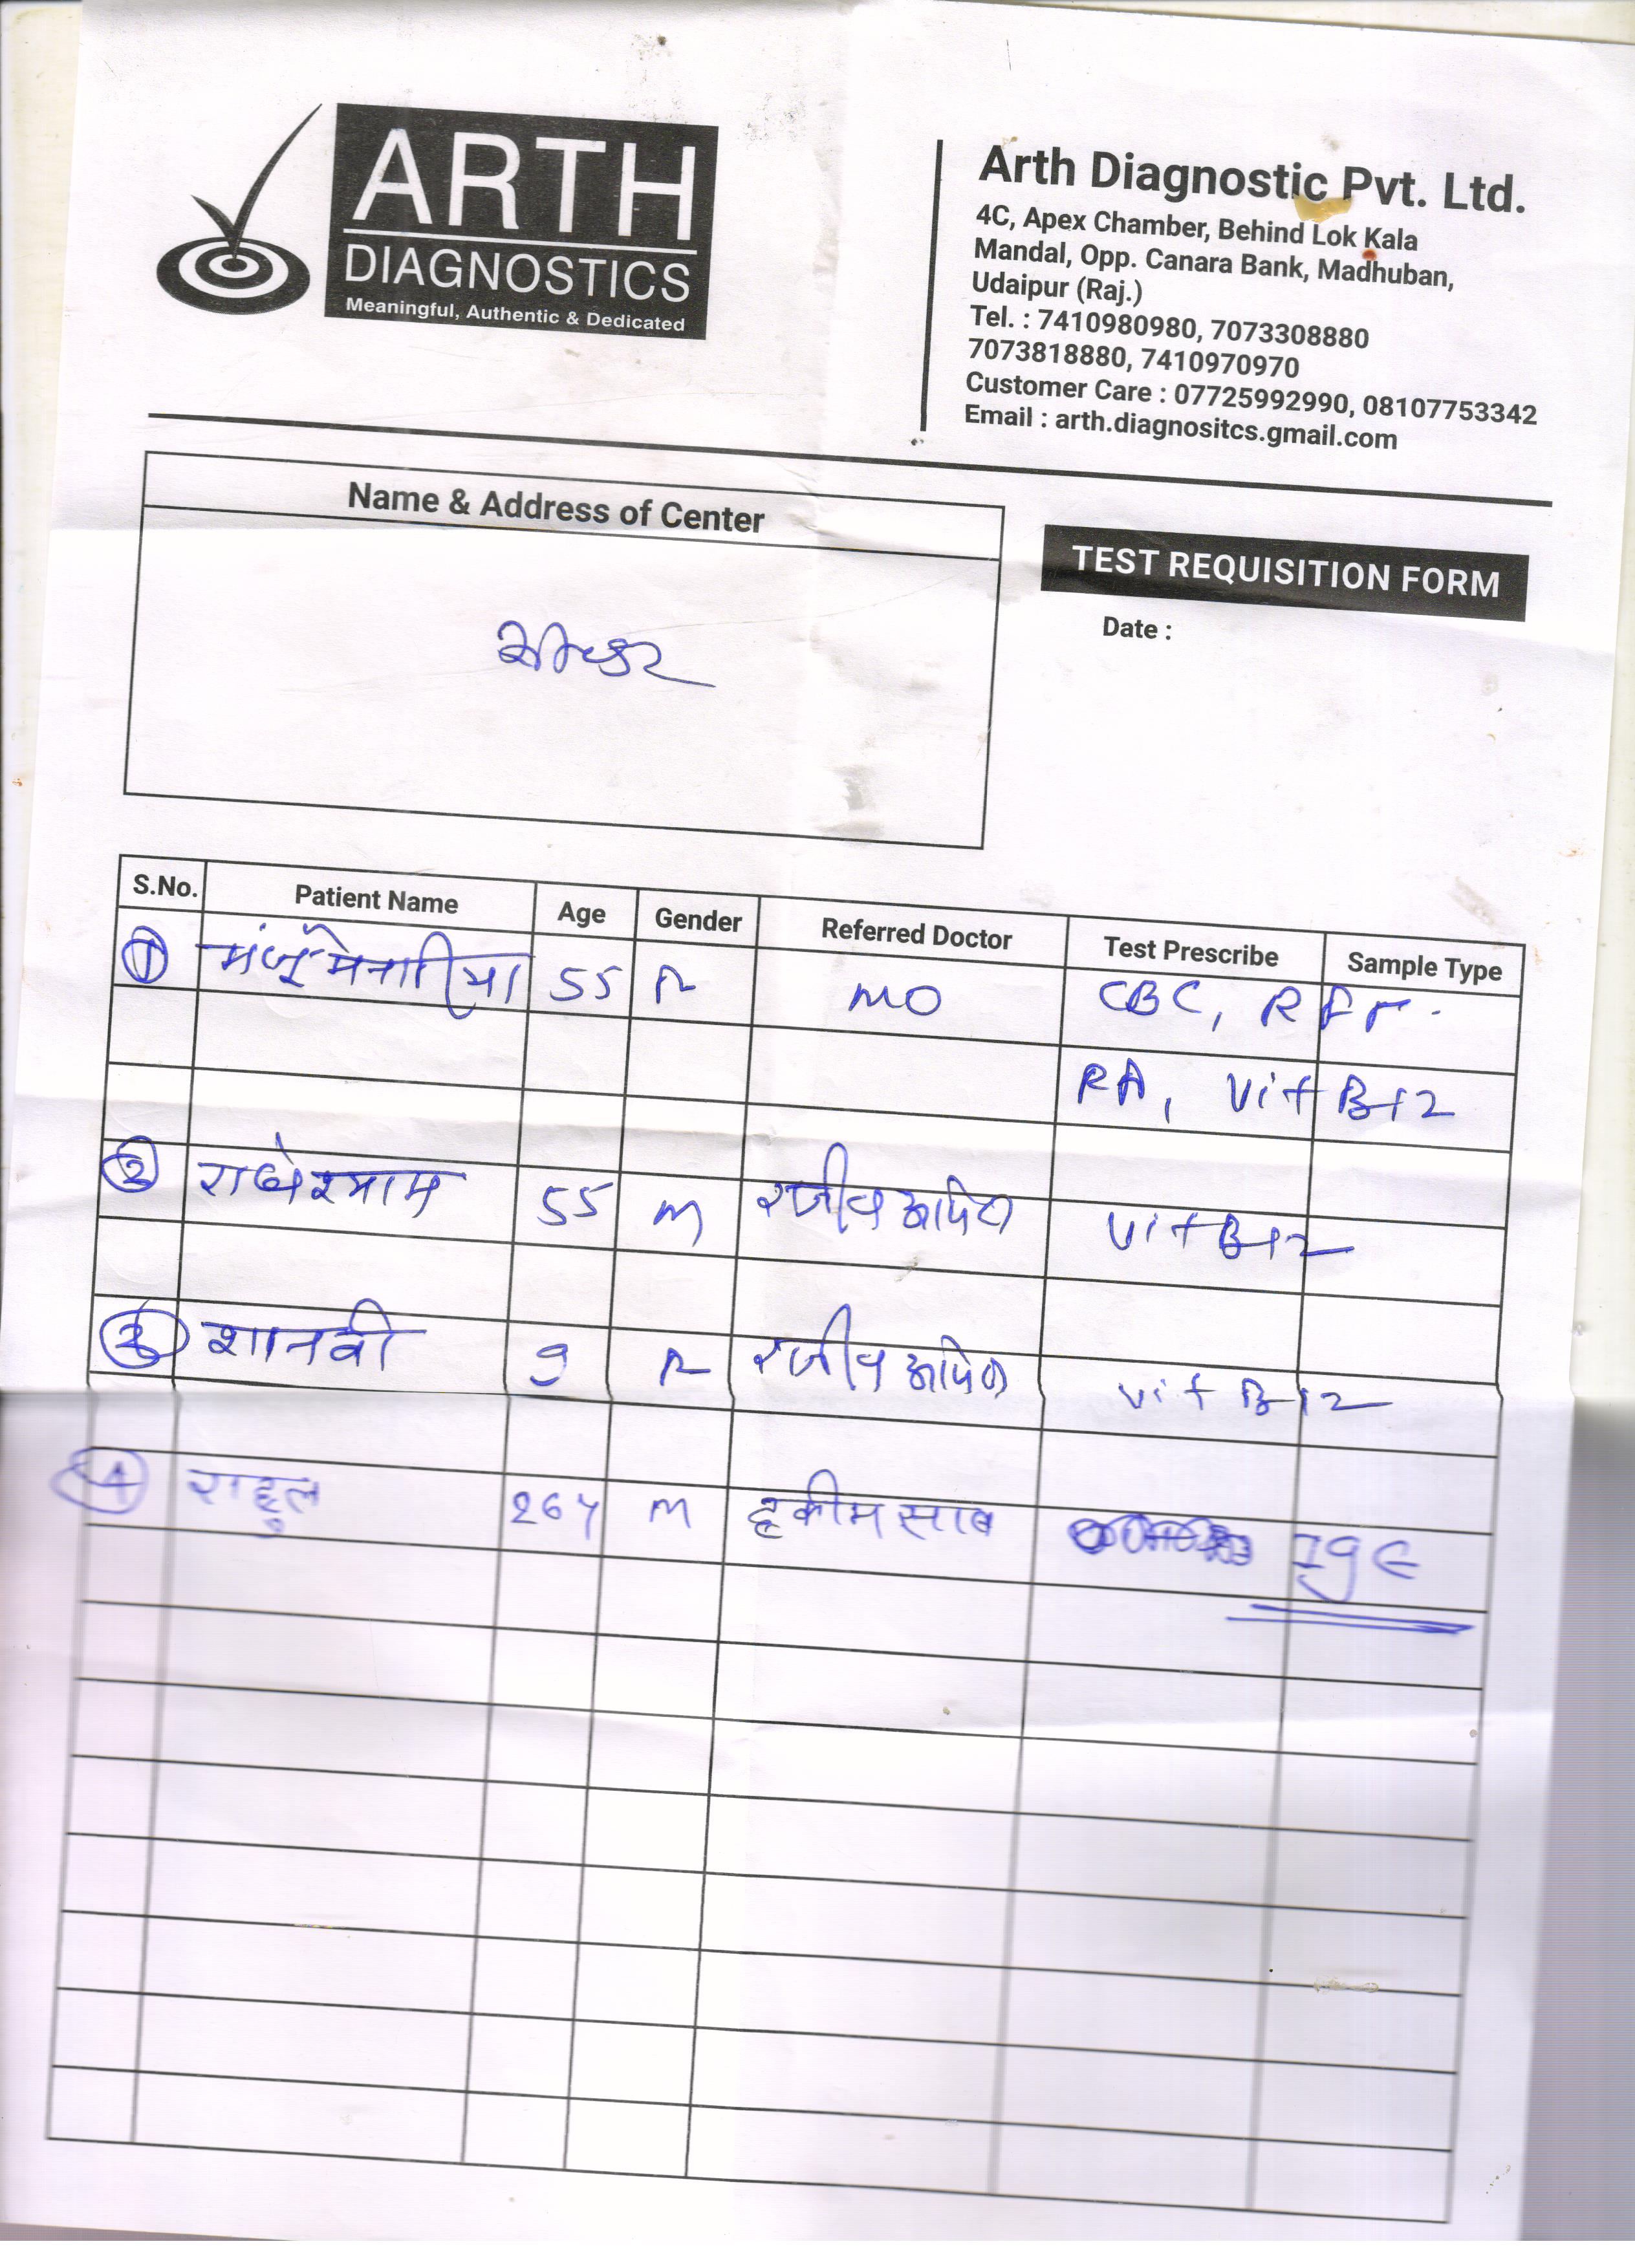 ARTH
DIAGNOSTICS
Meaningful, Authentic & Dedicated
Arth Diagnostic Pvt. Ltd.
4C, Apex Chamber, Behind Lok Kala
Mandal, Opp. Canara Bank, Madhuban,
Udaipur (Raj.)
Tel. : 7410980980, 7073308880
7073818880, 7410970970
Customer Care : 07725992990, 08107753342
Email : arth.diagnositcs.gmail.com
Name & Address of Center
TEST REQUISITION FORM
Date :
S.No. Patient Name Age Gender Referred Doctor Test Prescribe Sample Type
1 मंजू मेनारिया 55 MO CBC,
RA, Vit B12
2 राधेश्याम 55 M Vit B12
3 शानवी 9 Vit B12
4 राहुल 26y M हकीम साब IgE